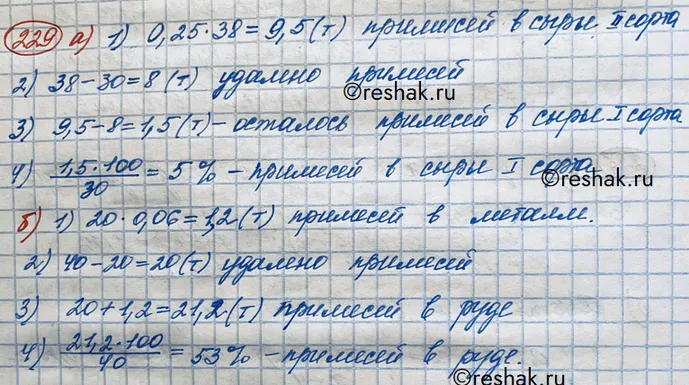 229 а) 1) 0,25·38=9,5(т) примесей в сырье II сорта
2) 38-30=8 (т) удалено примесей
©reshak.ru
3) 9,5-8=1,5(т)-осталось примесей в сырье I сорта
4) 1,5·100/30 = 5% - примесей в сырье I сорта
©reshak.ru
б) 1) 20·0,06=1,2(т) примесей в металл.
2) 40-20=20(т) удалено примесей
3) 20+1,2=21,2(т) примесей в руде
©reshak.ru
4) 21,2·100/40 = 53% - примесей в руде.